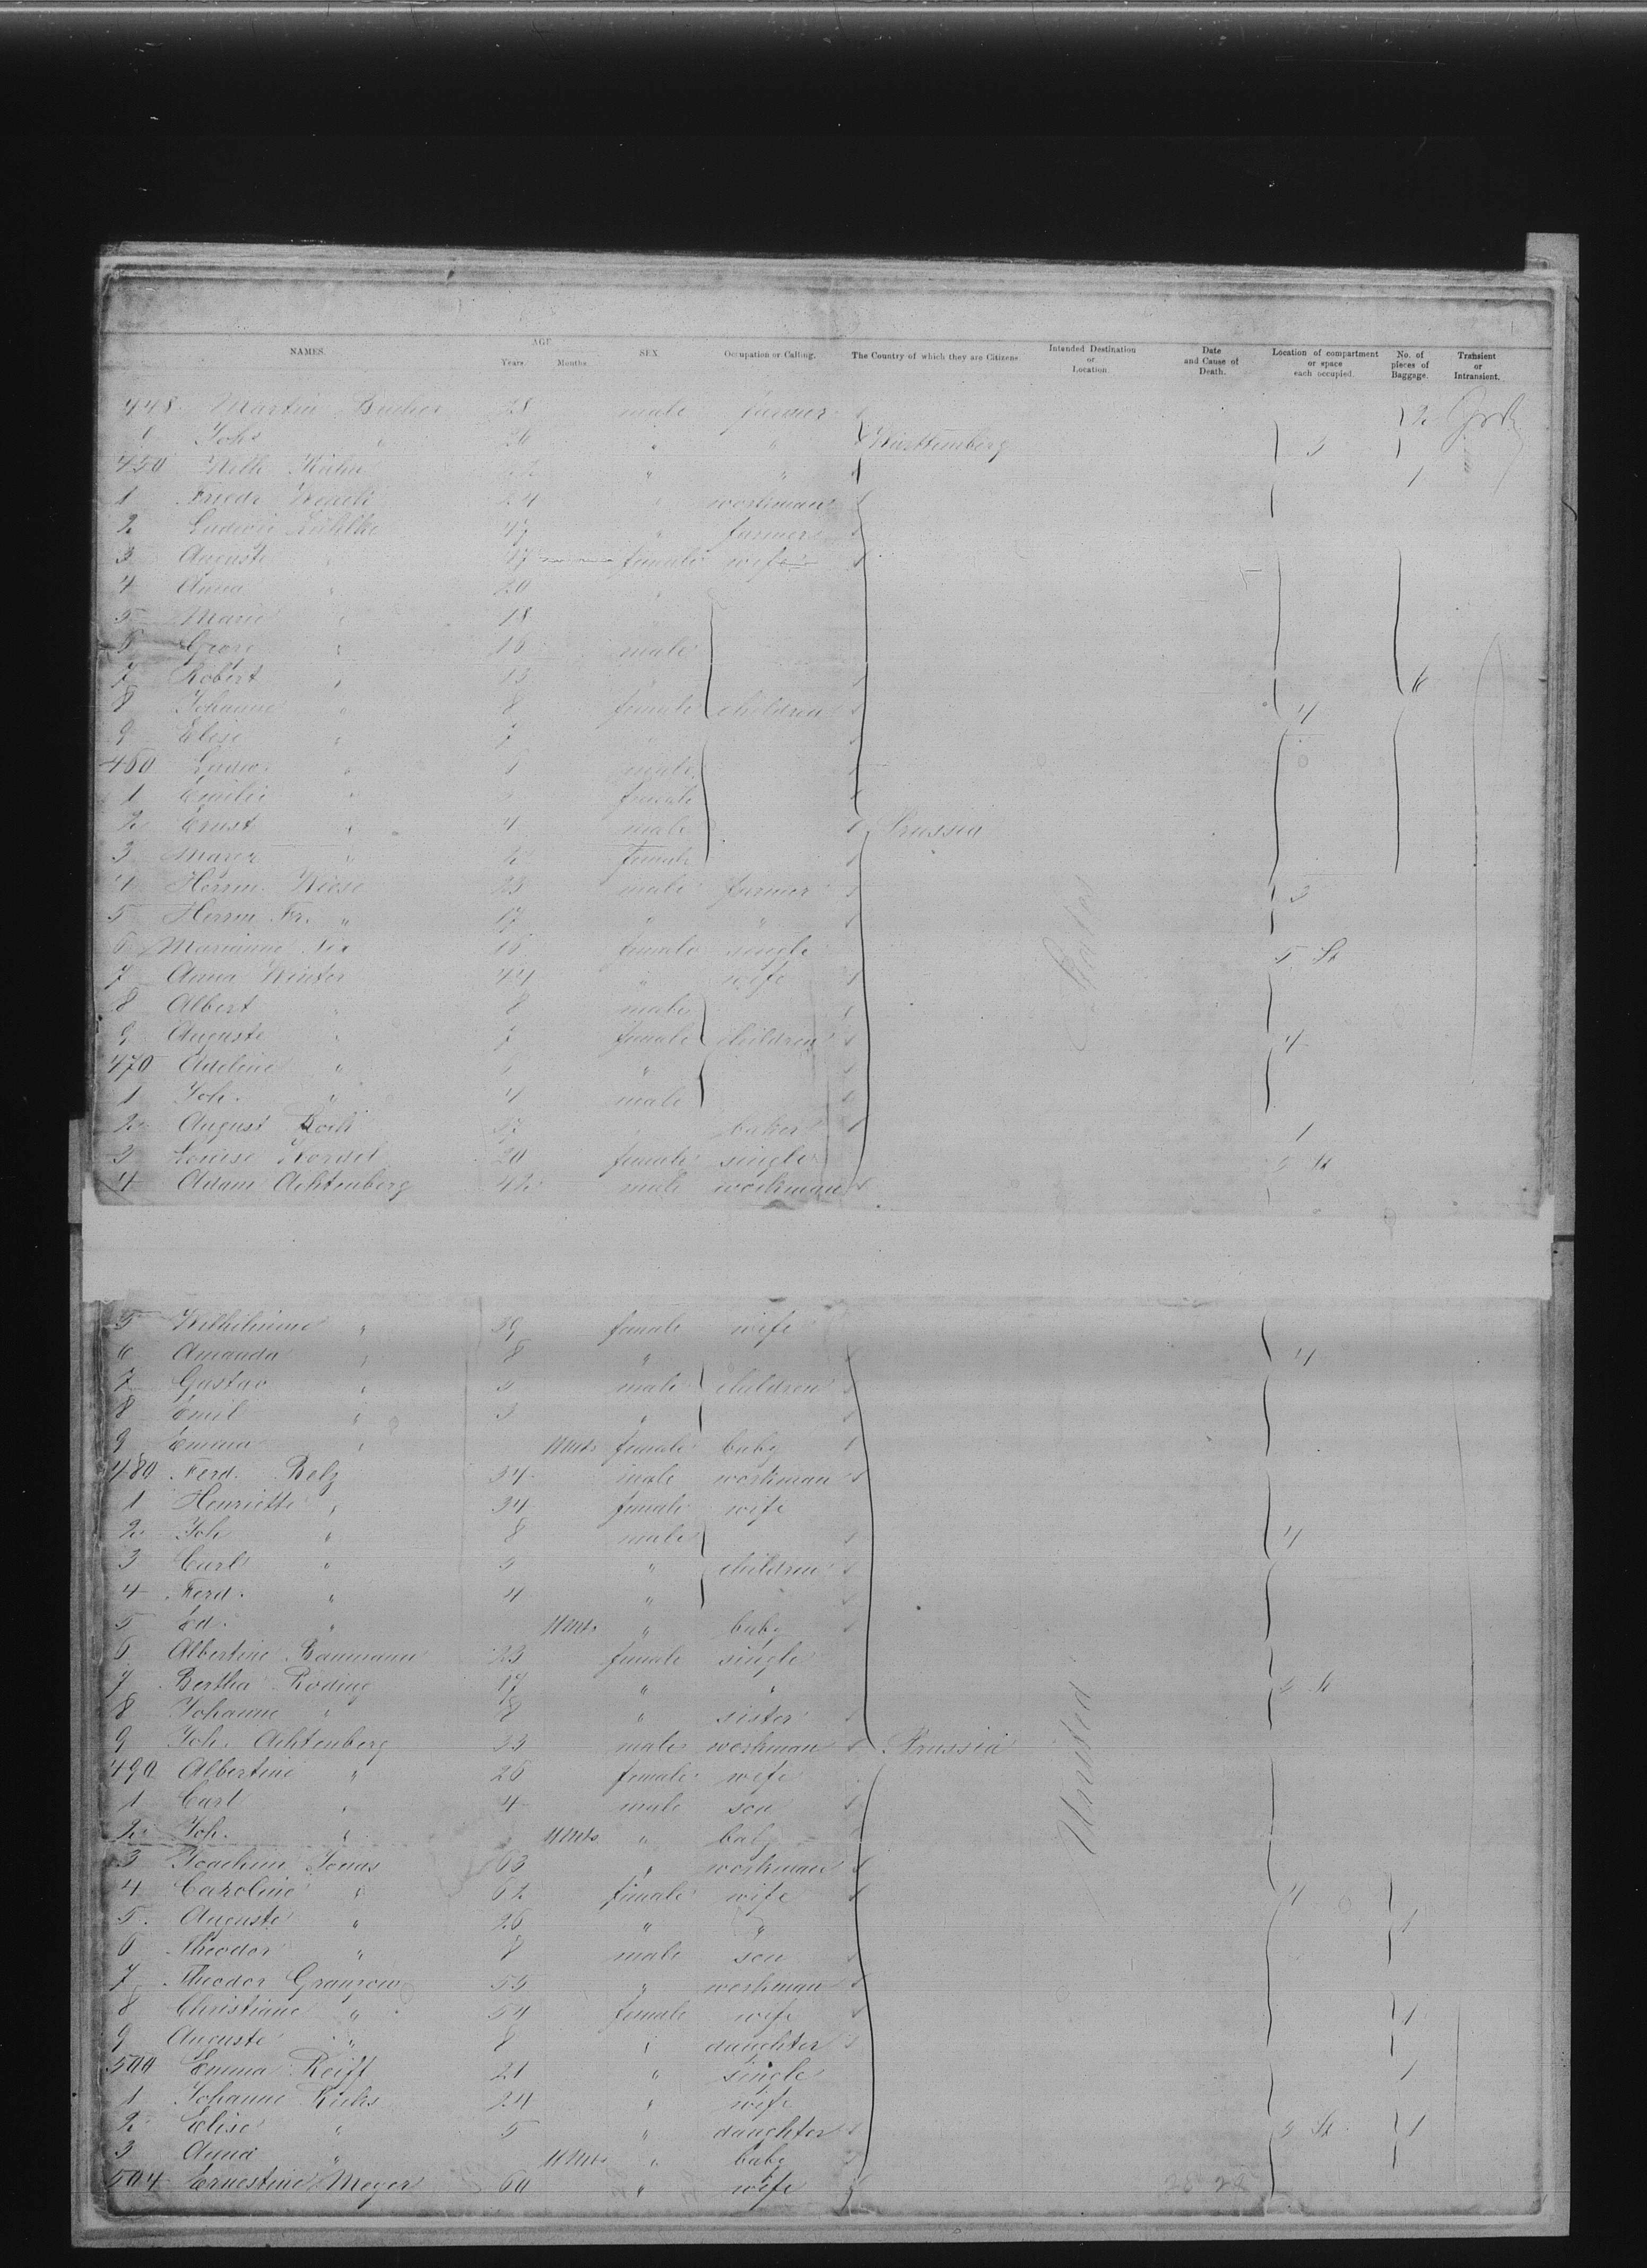 NAMES. AGE. Years. Months. SEX Occupation or Calling. The Country of which they are Citizens Intanded Destination or Location. Date and Cause of Death. Location of compartment or space each occupied. No. of pieces of Baggage. Transient or Intransient.
448 Martin Bucher 28 male farmer 2
Joh. " 26 " " Württemberg 3
450 Wilh. Kuhn 22 " " 1
1 Friedr. 24 workman
2 Ludwig 47 " farmer
3 Auguste " 47 female wife
4 Anna " 20 "
5 Marie " 18
6 Georg " 16 male
7 Robert " 13 "
8 Johanne " 8 female children 4
9 Elise " 7 "
460 Ludw. " male
1 Emilie " female
2 Ernst " 4 male Prussia
3 " female
4 Herrm. Wiese 23 male farmer 3
5 Herrm. Fr. " 17 " "
6 Marianne 18 female single 5 St
7 Anna Winter 44 " wife
8 Albert " 8 male
9 Auguste " 7 female children 4
470 Adeline " "
1 Joh. " 4 male
2 August 37 baker 1
3 Louise 20 female single St
4 Adam Achtenberg 42 male workman
5 Wilhelmine " 39 female wife
6 Amanda " 8 " 4
7 Gustav " 5 male children
8 Emil " 3 "
9 Emma " 11 Mts female baby
480 Ferd. Belz 34 male workman
1 Henriette " 34 female wife
2 Joh " 8 male 4
3 Carl " 5 " children
4 Ferd. " 4 "
5 Ed. " 11 Mts " baby
6 Albertine Baumann 23 female single
7 Bertha Roding 17 " " 5 St
8 Johanne " 8 " sister
9 Joh. Achtenberg 33 male workman Prussia
490 Albertine " 26 female wife
1 Carl " 4 male son
2 Joh. " 11 Mts " baby
3 Joachim Jonas 63 " workman
4 Caroline " 62 female wife 4
5 Auguste " 26 " " 1
6 Theodor " 8 male son
7 Theodor Granzow 55 " workman
8 Christiane " 54 female wife 1
9 Auguste " 8 " daughter
500 Emma Reiff 21 " single 1
1 Johanne Kuhs 24 " wife
2 Elise " 5 " daughter 5 St 1
3 Anna " 11 Mts " baby
504 Ernestine Meyer 60 " wife
United
States